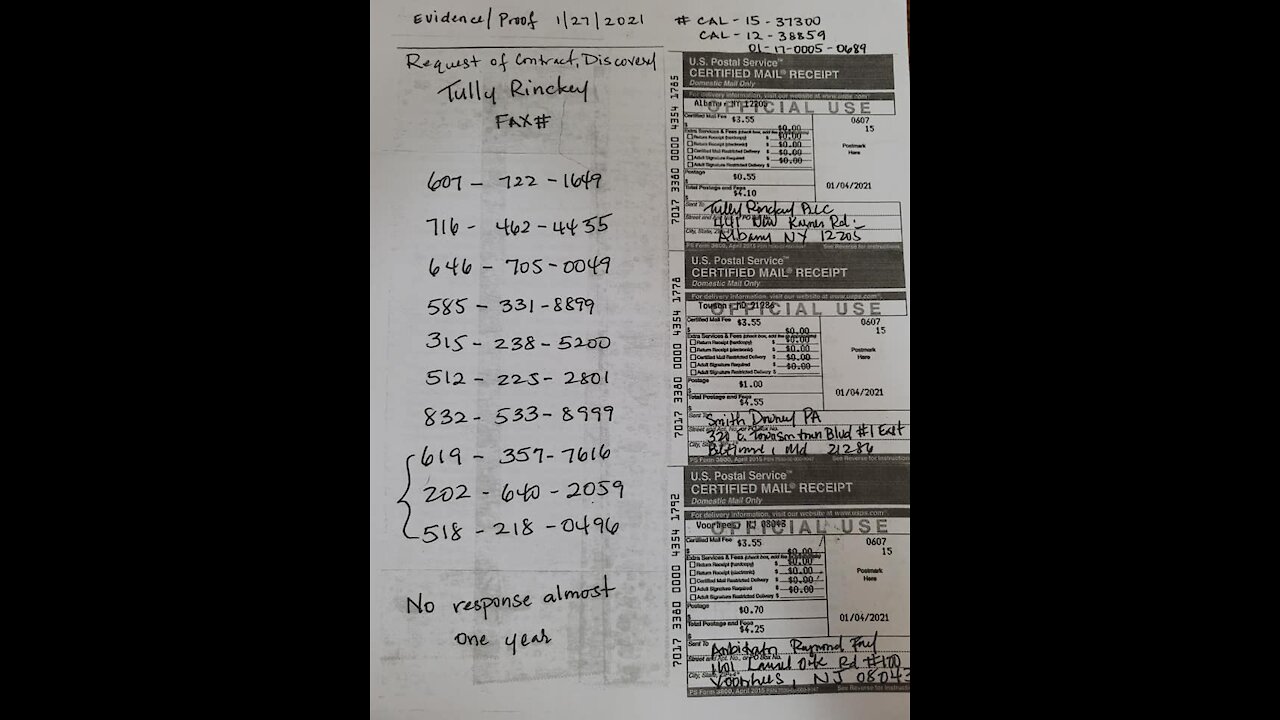 Evidence/Proof 1/27/2021
# CAL-15-37300
CAL-12-38859
01-17-0005-0689
Request of Contract, Discovery
Tully Rinckey
FAX#
607-722-1649
716-462-4435
646-705-0049
585-331-8899
315-238-5200
512-225-2801
832-533-8999
619-357-7616
202-640-2059
518-218-0496
No response almost
one year
7017 3380 0000 4354 1785
U.S. Postal Service™
CERTIFIED MAIL® RECEIPT
Domestic Mail Only
For delivery information, visit our website at www.usps.com®.
Albany, NY 12205
OFFICIAL USE
Certified Mail Fee $3.55
0607
15
$
$0.00
Extra Services & Fees (check box, add fee as appropriate)
Return Receipt (hardcopy) $ $0.00
Return Receipt (electronic) $ $0.00
Certified Mail Restricted Delivery $ $0.00
Adult Signature Required $ $0.00
Adult Signature Restricted Delivery $
Postmark
Here
Postage
$ $0.55
Total Postage and Fees
$ $4.10
01/04/2021
Sent To Tully Rinckey PLLC
Street and Apt. No., or PO Box No. 441 New Karner Rd.
City, State, ZIP+4® Albany NY 12205
PS Form 3800, April 2015 PSN 7530-02-000-9047 See Reverse for Instructions
7017 3380 0000 4354 1778
U.S. Postal Service™
CERTIFIED MAIL® RECEIPT
Domestic Mail Only
For delivery information, visit our website at www.usps.com®.
Towson, MD 21286
OFFICIAL USE
Certified Mail Fee $3.55
0607
15
$
$0.00
Extra Services & Fees (check box, add fee as appropriate)
Return Receipt (hardcopy) $ $0.00
Return Receipt (electronic) $ $0.00
Certified Mail Restricted Delivery $ $0.00
Adult Signature Required $ $0.00
Adult Signature Restricted Delivery $
Postmark
Here
Postage
$ $1.00
Total Postage and Fees
$ $4.55
01/04/2021
Sent To Smith Downey PA
Street and Apt. No., or PO Box No. 320 E. Towsontown Blvd #1 East
City, State, ZIP+4® Baltimore, Md 21286
PS Form 3800, April 2015 PSN 7530-02-000-9047 See Reverse for Instructions
7017 3380 0000 4354 1792
U.S. Postal Service™
CERTIFIED MAIL® RECEIPT
Domestic Mail Only
For delivery information, visit our website at www.usps.com®.
Voorhees, NJ 08043
OFFICIAL USE
Certified Mail Fee $3.55
0607
15
$
$0.00
Extra Services & Fees (check box, add fee as appropriate)
Return Receipt (hardcopy) $ $0.00
Return Receipt (electronic) $ $0.00
Certified Mail Restricted Delivery $ $0.00
Adult Signature Required $ $0.00
Adult Signature Restricted Delivery $
Postmark
Here
Postage
$ $0.70
Total Postage and Fees
$ $4.25
01/04/2021
Sent To Arbitrator Raymond
Street and Apt. No., or PO Box No. 1101 Laurel Oak Rd #100
City, State, ZIP+4® Voorhees, NJ 08043
PS Form 3800, April 2015 PSN 7530-02-000-9047 See Reverse for Instructions